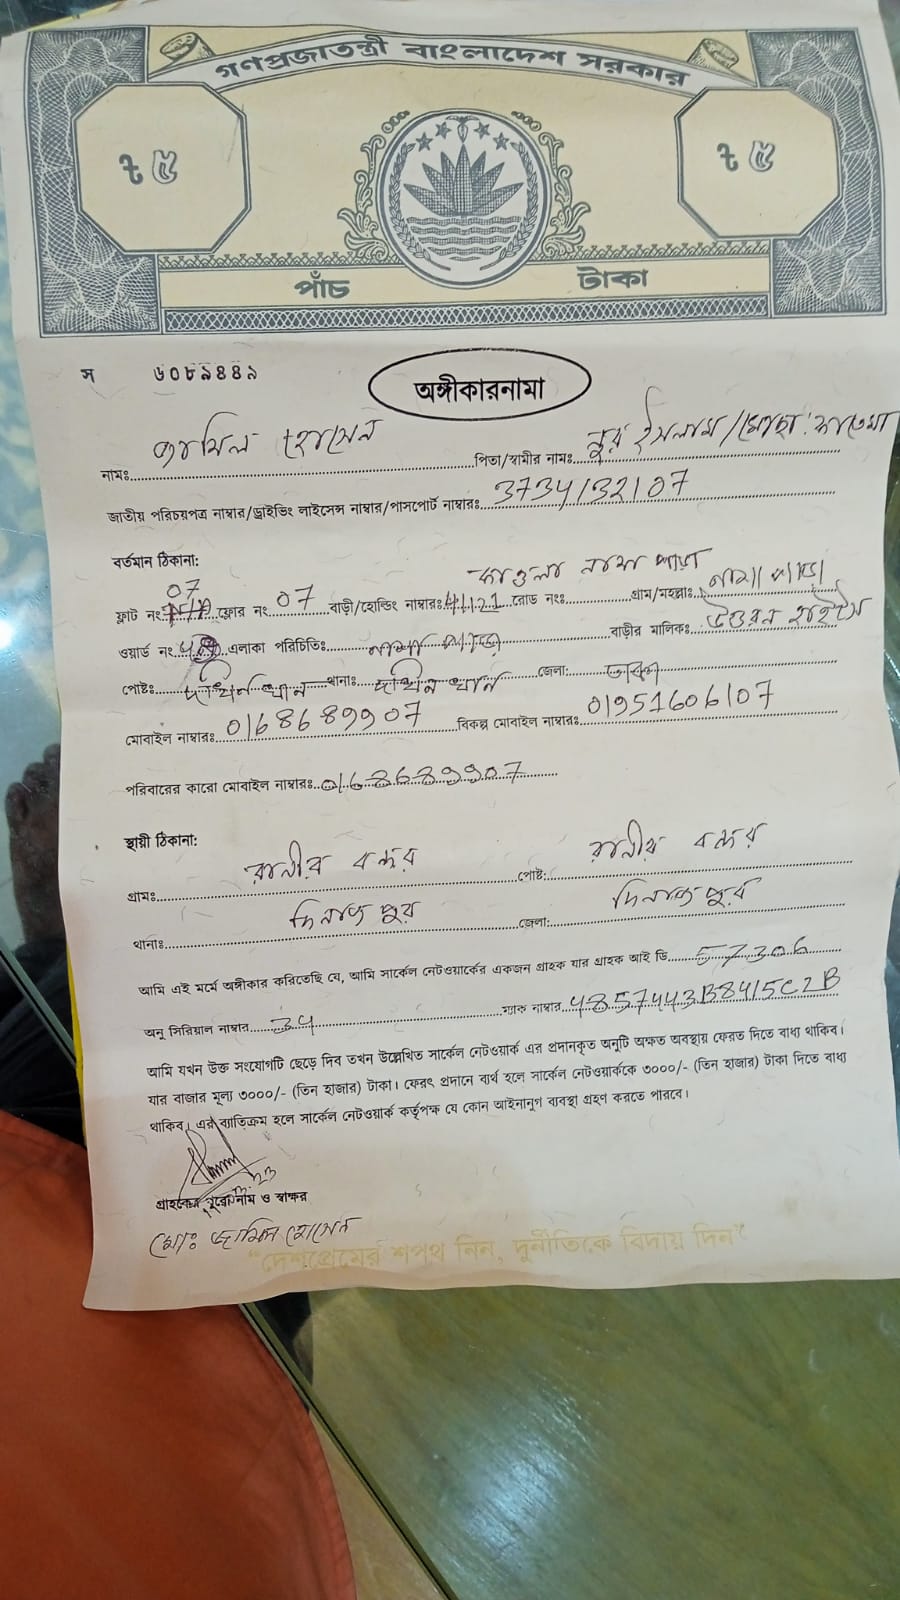 গণপ্রজাতন্ত্রী বাংলাদেশ সরকার
৳ ৫
৳ ৫
পাঁচ টাকা
স ৬০৮৯৪৪৯
অঙ্গীকারনামা
নামঃ জামিল হোসেন পিতা/স্বামীর নামঃ নুর ইসলাম/মোছা: ফাতেমা
জাতীয় পরিচয়পত্র নাম্বার/ড্রাইভিং লাইসেন্স নাম্বার/পাসপোর্ট নাম্বারঃ 3734132107
বর্তমান ঠিকানা:
কাওলা নামা পাড়া
ফ্লাট নং 07 ফ্লোর নং 07 বাড়ী/হোল্ডিং নাম্বারঃ রোড নংঃ গ্রাম/মহল্লাঃ নামা পাড়া
ওয়ার্ড নং এলাকা পরিচিতিঃ নামা পাড়া বাড়ীর মালিকঃ হাইটস
পোষ্টঃ দক্ষিন খান থানাঃ দক্ষিন খান জেলা: ঢাকা
মোবাইল নাম্বারঃ 01686899907 বিকল্প মোবাইল নাম্বারঃ 01951606107
পরিবারের কারো মোবাইল নাম্বারঃ 01686899907
স্থায়ী ঠিকানা:
গ্রামঃ রানীর বন্দর পোষ্ট: রানীর বন্দর
থানাঃ দিনাজপুর জেলা: দিনাজপুর
আমি এই মর্মে অঙ্গীকার করিতেছি যে, আমি সার্কেল নেটওয়ার্কের একজন গ্রাহক যার গ্রাহক আই ডি 57306
অনু সিরিয়াল নাম্বার 34 ম্যাক নাম্বার 4857443B8415C2B
আমি যখন উক্ত সংযোগটি ছেড়ে দিব তখন উল্লেখিত সার্কেল নেটওয়ার্ক এর প্রদানকৃত অনুটি অক্ষত অবস্থায় ফেরত দিতে বাধ্য থাকিব।
যার বাজার মূল্য ৩০০০/- (তিন হাজার) টাকা। ফেরৎ প্রদানে ব্যর্থ হলে সার্কেল নেটওয়ার্ককে ৩০০০/- (তিন হাজার) টাকা দিতে বাধ্য
থাকিব। এর ব্যতিক্রম হলে সার্কেল নেটওয়ার্ক কর্তৃপক্ষ যে কোন আইনানুগ ব্যবস্থা গ্রহণ করতে পারবে।
গ্রাহকের পুরো নাম ও স্বাক্ষর
মোঃ জামিল হোসেন
“দেশপ্রেমের শপথ নিন, দুর্নীতিকে বিদায় দিন”